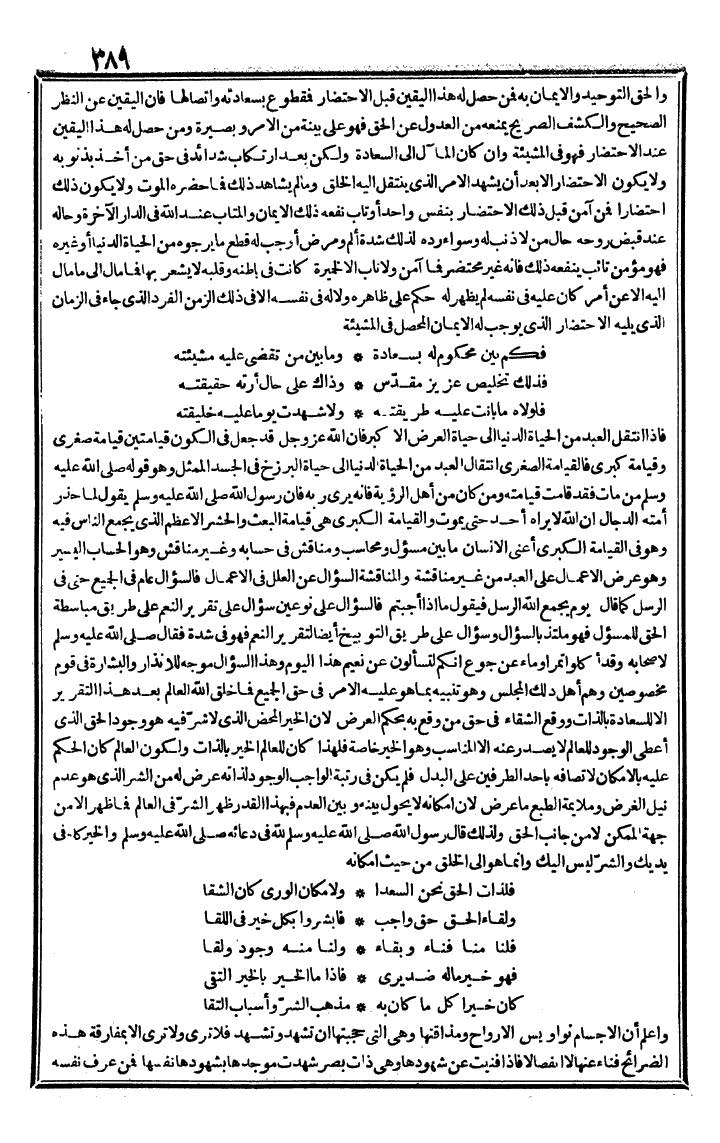 ٣٨٩
والحق التوحيد والايمان به فمن حصل له هذا اليقين قبل الاحتضار فمقطوع بسعادته واتصالها فان اليقين عن النظر
الصحيح والكشف الصريح يمنعه من العدول عن الحق فهو على بينة من الامر وبصيرة ومن حصل له هذا اليقين
عند الاحتضار فهو فى المشيئة وان كان المآل الى السعادة ولكن بعد ارتكاب شدائد فى حق من أخذ بذنوبه
ولا يكون الاحتضار الا بعد أن يشهد الامر الذى ينتقل اليه الخلق ومالم يشاهد ذلك فما حضره الموت ولا يكون ذلك
احتضارا فمن آمن قبل ذلك الاحتضار بنفس واحد أو تاب نفعه ذلك الايمان والمتاب عند الله فى الدار الآخرة وحاله
عند قبض روحه حال من لا ذنب له وسواء رده لذلك شدة ألم ومرض أوجب له قطع ما يرجوه من الحياة الدنيا أو غيره
فهو مؤمن تائب ينفعه ذلك فانه غير محتضر فما آمن ولا تاب الا لخيرة كانت فى باطنه وقلبه لا يشعر بها فما مال الى ما مال
اليه الا عن أمر كان عليه فى نفسه لم يظهر له حكم على ظاهره ولا له فى نفسه الا فى ذلك الزمن الفرد الذى جاء فى الزمان
الذى يليه الاحتضار الذى يوجب له الايمان المحصل فى المشيئة
فكم بين محكوم له بسعادة * وما بين من تقضى عليه مشيئته
فذلك تخليص عزيز مقدّس * وذاك على حال أرته حقيقته
فلولاه ما بانت عليه طريقته * ولا شهدت يوما عليه خليقته
فاذا انتقل العبد من الحياة الدنيا الى حياة العرض الاكبر فان الله عز وجل قد جعل فى الكون قيامتين قيامة صغرى
وقيامة كبرى فالقيامة الصغرى انتقال العبد من الحياة الدنيا الى حياة البرزخ فى الجسد الممثل وهو قوله صلى الله عليه
وسلم من مات فقد قامت قيامته ومن كان من أهل الرؤية فانه يرى ربه فان رسول الله صلى الله عليه وسلم يقول لما حذر
أمته الدجال ان الله لا يراه أحد حتى يموت والقيامة الكبرى هى قيامة البعث والحشر الاعظم الذى يجمع الناس فيه
وهو فى القيامة الكبرى أعنى الانسان ما بين مسؤل ومحاسب ومناقش فى حسابه وغير مناقش وهو الحساب اليسير
وهو عرض الاعمال على العبد من غير مناقشة والمناقشة السؤال عن العلل فى الاعمال فالسؤال عام فى الجميع حتى فى
الرسل كما قال يوم يجمع الله الرسل فيقول ماذا أجبتم فالسؤال على نوعين سؤال على تقرير النعم على طريق مباسطة
الحق للمسؤل فهو ملتذ بالسؤال وسؤال على طريق التوبيخ أيضا لتقرير النعم فهو فى شدة فقال صلى الله عليه وسلم
لاصحابه وقد أكلوا تمرا وماء عن جوع انكم لتسألون عن نعيم هذا اليوم وهذا السؤال موجه للانذار والبشارة فى قوم
مخصوصين وهم أهل ذلك المجلس وهو تنبيه بما هو عليه الامر فى حق الجميع فما خلق الله العالم بعد هذا التقرير
الا للسعادة بالذات ووقع الشقاء فى حق من وقع به بحكم العرض لان الخير المحض الذى لا شر فيه هو وجود الحق الذى
أعطى الوجود للعالم لا يصدر عنه الا المناسب وهو الخير خاصة فلهذا كان للعالم الخير بالذات ولكون العالم كان الحكم
عليه بالامكان لاتصافه باحد الطرفين على البدل فلم يكن فى رتبة الواجب الوجود لذاته عرض له من الشر الذى هو عدم
نيل الغرض وملايمة الطبع ما عرض لان امكانه لا يحول بينه وبين العدم فبهذا القدر ظهر الشرّ فى العالم فما ظهر الا من
جهة الممكن لا من جانب الحق ولذلك قال رسول الله صلى الله عليه وسلم لله فى دعائه صلى الله عليه وسلم والخير كله فى
يديك والشرّ ليس اليك وانما هو الى الخلق من حيث امكانه
فلذات الحق نحن السعدا * ولامكان الورى كان الشقا
ولقاء الحق حق واجب * فابشروا بكل خير فى اللقا
فلنا منا فناء وبقاء * ولنا منه وجود ولقا
فهو خير ماله ضد يرى * فاذا ما الخير بالخير التقى
كان خيرا كل ما كان به * مذهب الشرّ وأسباب التقا
واعلم أن الاجسام نواويس الارواح ومذاقتها وهى التى حجبتها ان تشهد وتشهد فلا ترى ولا ترى الا بمفارقة هذه
الضرائح فناء عنها لا انفصالا فاذا فنيت عن شهودها وهى ذات بصر شهدت موجدها بشهودها نفسها فمن عرف نفسه